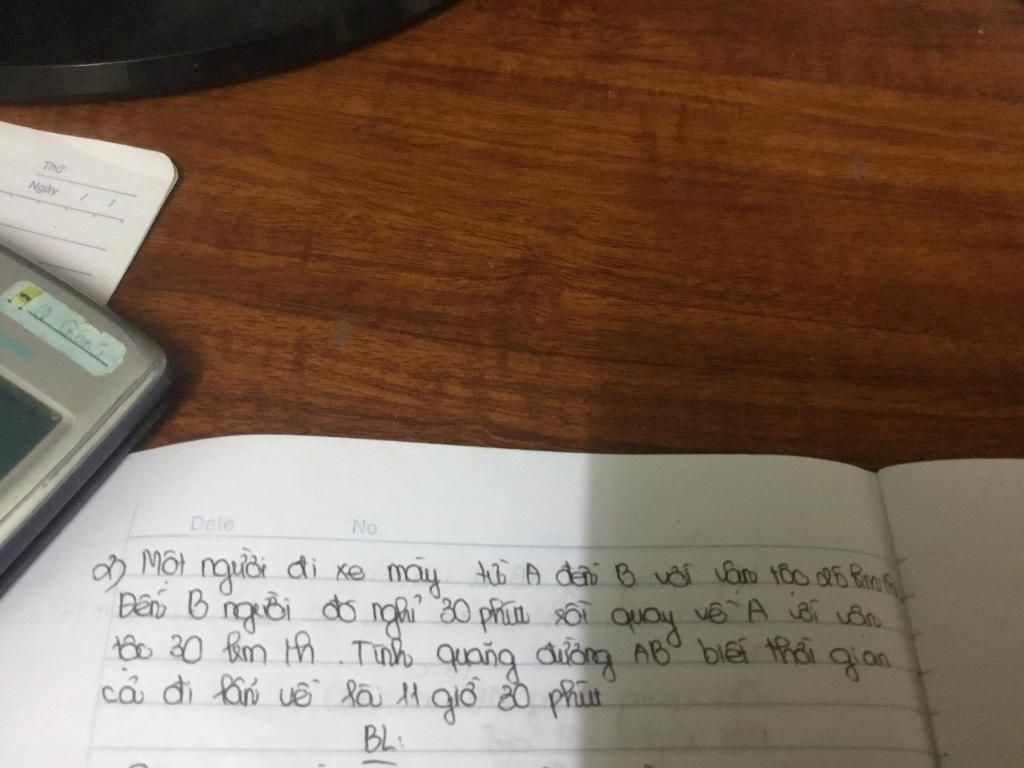 Thứ
Ngày / /
Date No
2) Một người đi xe máy từ A đến B với vận tốc 25 km/h
Đến B người đó nghỉ 30 phút rồi quay về A với vận
tốc 30 km/h. Tính quãng đường AB biết thời gian
cả đi lẫn về là 11 giờ 30 phút
BL: